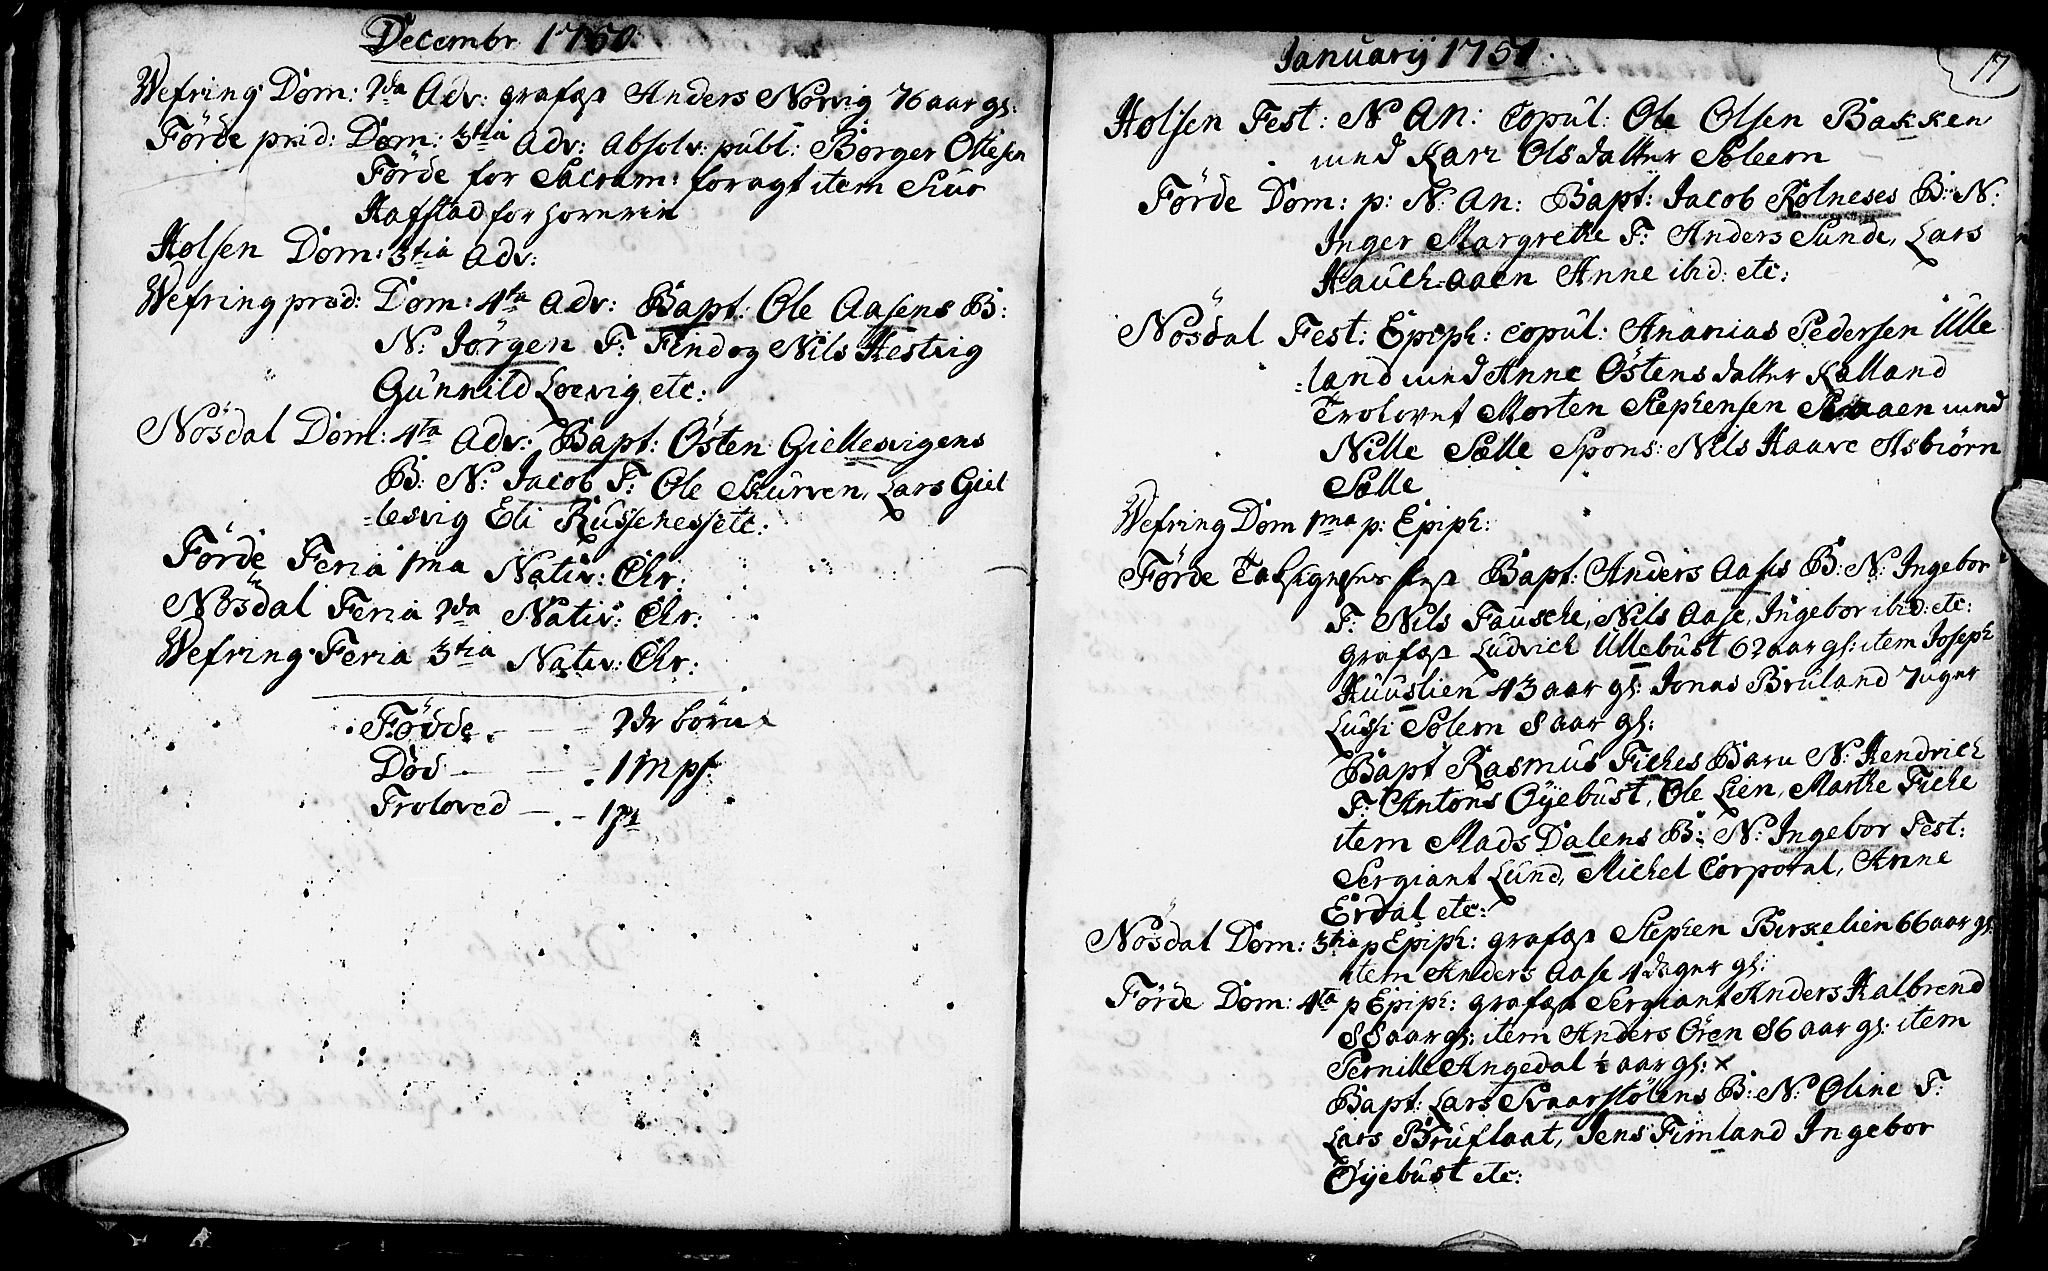 Decembr 1750.
Wefring Dom: 2da Adv: grafæst Anders Norvig 76 aar gl:
Förde præd: Dom: 3tia Adv: Absolv: publ: Börger Ottesen
Förde for Sacram: foragt item Siur
Hafstad for horerie
Holsen Dom: 3tia Adv:
Wefring præd: Dom: 4ta Adv: Bapt: Ole Aasens B:
N: Jörgen F: Find og Nils Hestvig
Gunnild Loevig etc:
Nösdal Dom: 4ta Adv: Bapt: Östen Giellesvigens
B: N: Jacob F: Ole Skurven, Lars Giel
=lesvig Eli Russeness etc:
Förde Feria 1ma Nativ: Chr:
Nösdal Feria 2da Nativ: Chr:
Wefring Feria 3tia Nativ: Chr:
Födde - - 2de börn
Död - - 1 Mpf:
Troloved - - 1 pr
Januarij 1751.
17
Holsen Fest: N: An: Copul: Ole Olsen Bakken
med Kari Olsdatter Soleem
Förde Dom: p: N: An: Bapt: Jacob Kolneses B: N:
Inger Margrethe F: Anders Sunde, Lars
Hauch-aaen Anne ibid: etc:
Nösdal Fest: Epiph: copul: Ananias Pedersen Ulle
=land med Anne Östensdatter Kalland
Trolovet Morten Stephensen aaen med
Nille Solle Spons: Nils Haave Asbiörn
Solle
Wefring Dom 1ma p: Epiph:
Förde Tacksigelses fest Bapt: Anders Aases B: N: Ingebor
F: Nils Fausche, Nils Aase, Ingebor ibid: etc:
grafæst Ludvich Ullebust 62 aar gl: item Joseph
Huuslien 43 aar gl: Jonas Bruland 7 uger
Lussi Solem 8 aar gl:
Bapt Rasmus Fiches Barn N: Hendrich
F: Antons Öyebust, Ole Lien, Marthe Fiche
item Mads Dalens B: N: Ingebor Test:
Sergiant Lund, Michel Corporal, Anne
Erdal etc:
Nösdal Dom: 3tia p Epiph: grafæst Stephen Birkelien 66 aar gl:
item Anders Aase 4 dager gl:
Förde Dom: 4ta p Epiph: grafæst Sergiant Anders Halbrend
88 aar gl: item Anders Ören 86 aar gl: item
Pernille Angedal ½ aar gl: x
Bapt: Lars Svaarstölens B: N: Oline F:
Lars Bruflaat, Jens Fimland Ingebor
Öyebust etc: